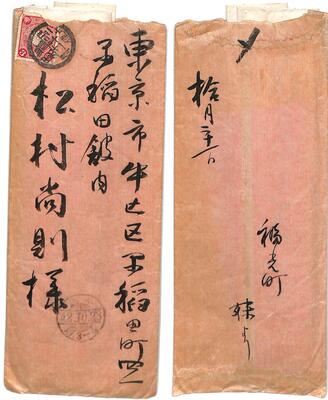 東京市牛込区早稲田町四一
早稲田館内
松村尚則様
22.10.23
拾月廿一日
福光町
妹より